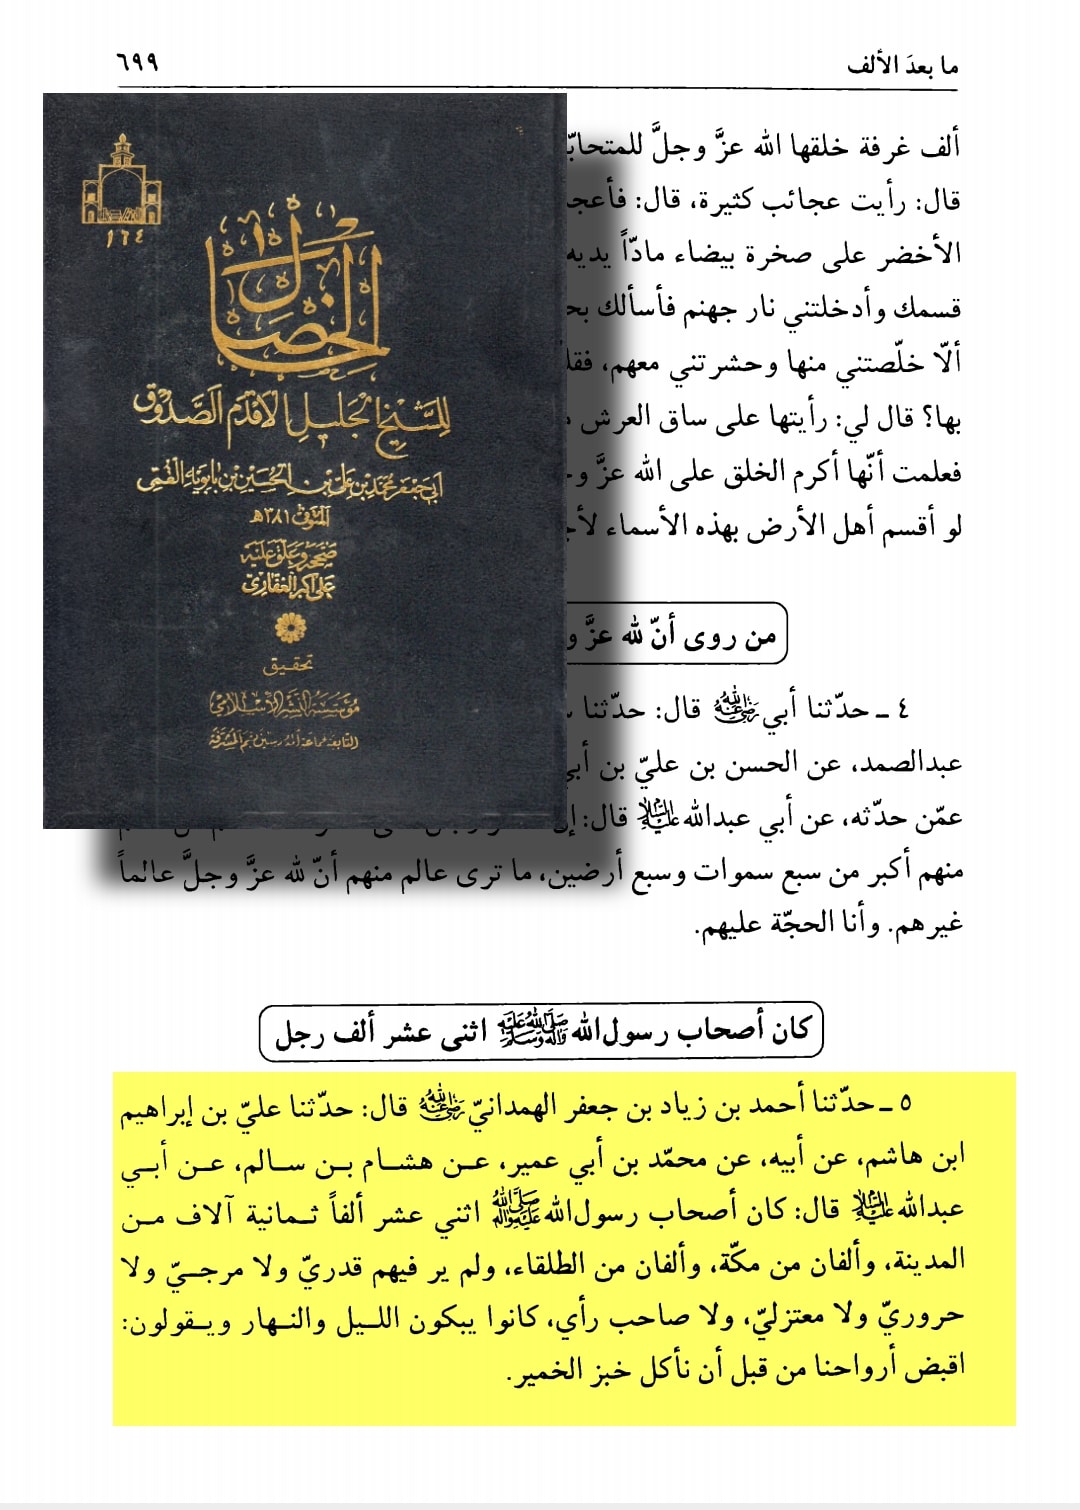 ما بعدَ الألف
٦٩٩
ألف غرفة خلقها الله عزَّ وجلَّ للمتحابّ
قال: رأيت عجائب كثيرة، قال: فأعج
الأخضر على صخرة بيضاء مادّاً يديه
قسمك وأدخلتني نار جهنم فأسألك بح
ألّا خلّصتني منها وحشرتني معهم، فقل
بها؟ قال لي: رأيتها على ساق العرش
فعلمت أنّها أكرم الخلق على الله عزَّ و
لو أقسم أهل الأرض بهذه الأسماء لأج
من روى أنّ لله عزَّ و
٤ ـ حدّثنا أبي رضي الله عنه قال: حدّثنا
عبدالصمد، عن الحسن بن عليّ بن أبي
عمّن حدّثه، عن أبي عبدالله عليه السلام قال: إن
منهم أكبر من سبع سموات وسبع أرضين، ما ترى عالم منهم أنّ لله عزَّ وجلَّ عالماً
غيرهم. وأنا الحجّة عليهم.
كان أصحاب رسول‌الله صلى الله عليه وآله وسلم اثنى عشر ألف رجل
٥ ـ حدّثنا أحمد بن زياد بن جعفر الهمدانيّ رضي الله عنه قال: حدّثنا عليّ بن إبراهيم
ابن هاشم، عن أبيه، عن محمّد بن أبي عمير، عـن هشـام بـن سـالم، عـن أبـي
عبدالله عليه السلام قال: كان أصحاب رسول‌الله صلى الله عليه وآله اثني عشر ألفاً ثـمانية آلاف مـن
المدينة، وألفان من مكّة، وألفان من الطلقاء، ولم ير فيهم قدريّ ولا مرجـيّ ولا
حروريّ ولا معتزليّ، ولا صاحب رأي، كانوا يبكون اللـيل والنـهار ويـقولون:
اقبض أرواحنا من قبل أن نأكل خبز الخمير.
١٦٤
الخصال
للشيخ الجليل الأقدم الصدوق
أبي جعفر محمد بن علي بن الحسين بن بابويه القمي
المتوفى ٣٨١ه
صححه وعلق عليه
علي أكبر الغفاري
تحقيق
مؤسسة النشر الإسلامي
التابعة لجماعة المدرسين بقم المشرفة